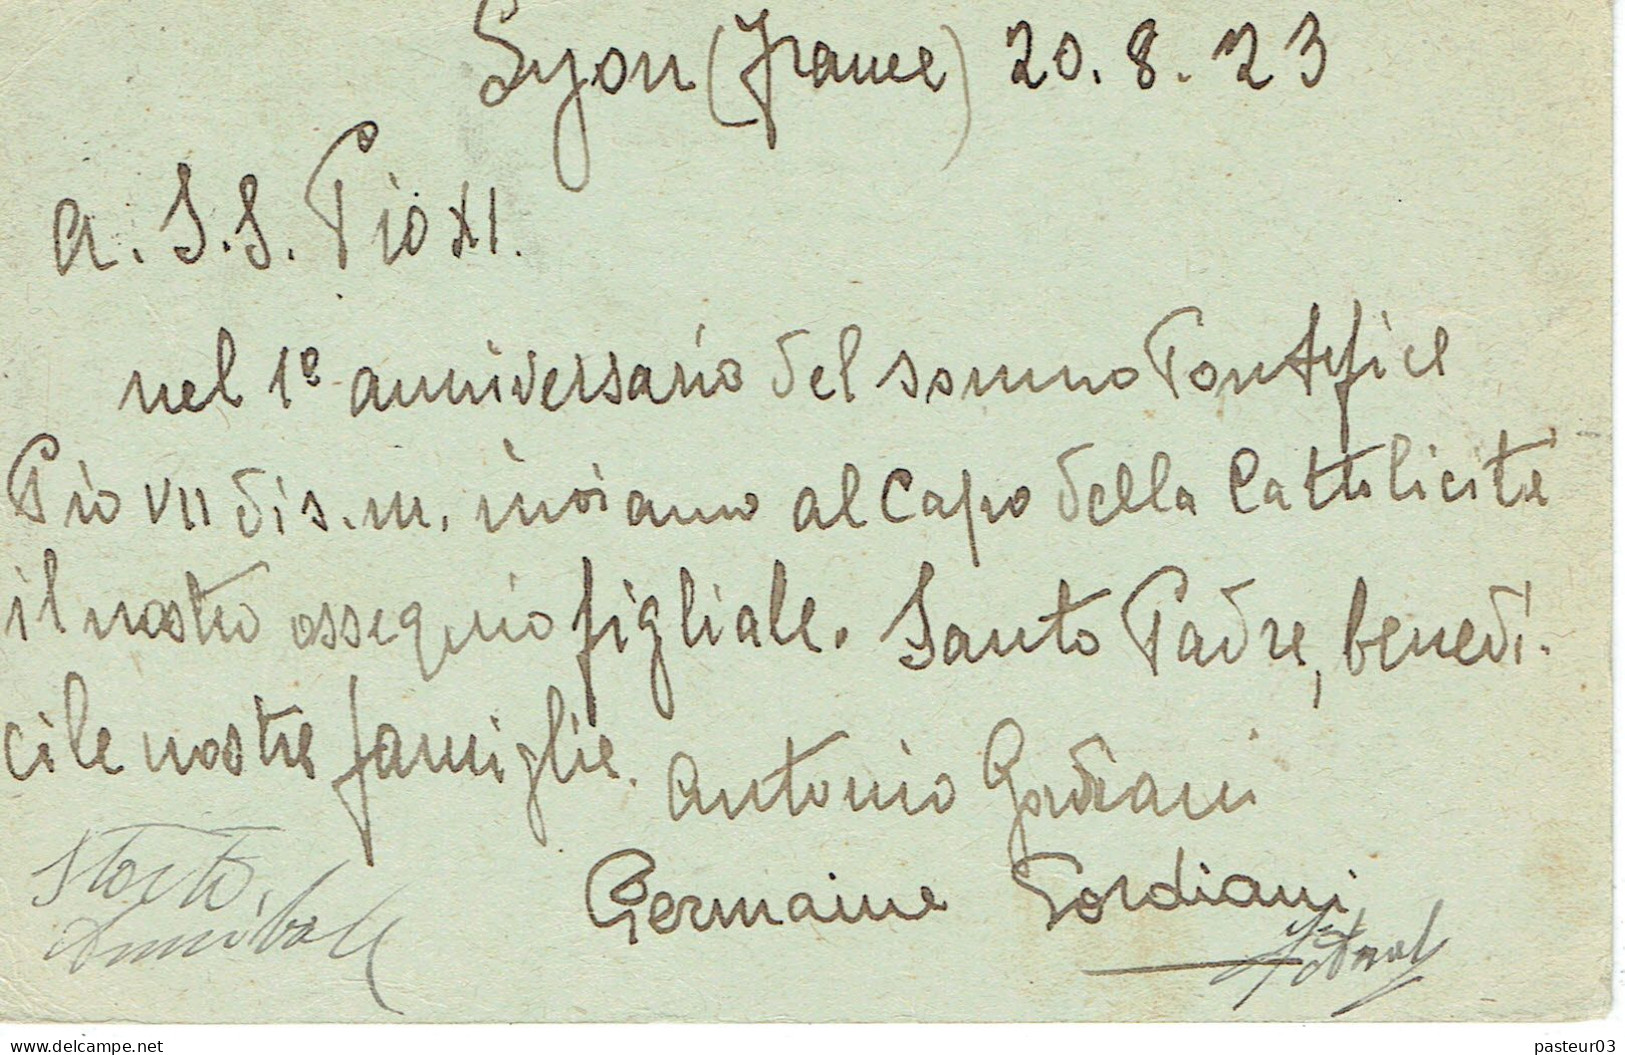 Lyon (France) 20.8.23
a. S.S. Pio XI.
nel 1º anniversario del sommo Pontefice
Pio VII di s.m. inviamo al Capo della Cattolicità
il nostro ossequio figliale. Santo Padre, benedi.
cile nostre famiglie. Antonio Gordiani
Germaine Gordiani
Annibale
pasteur03